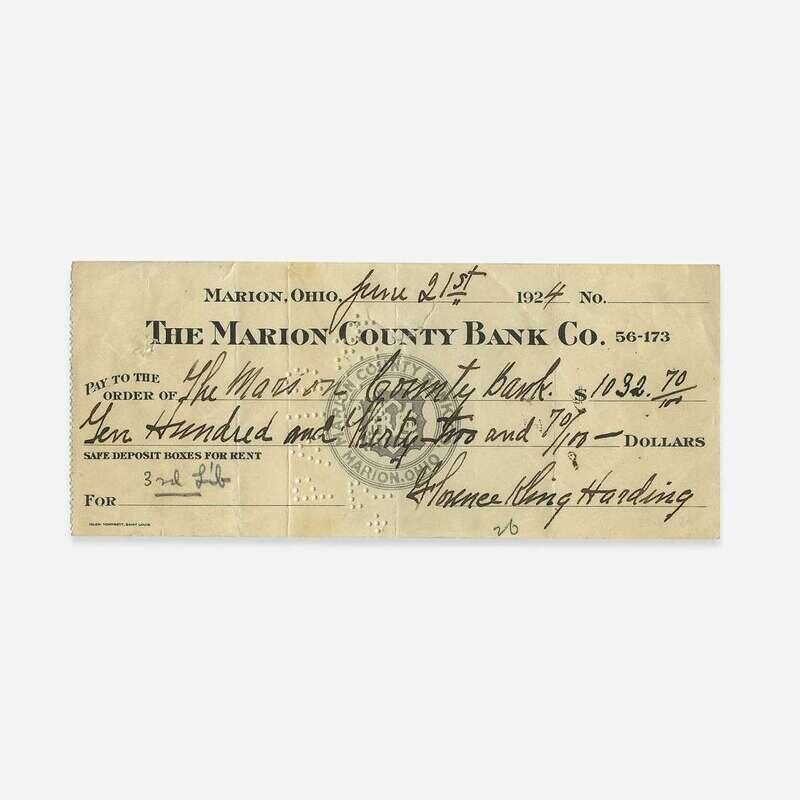 MARION, OHIO, June 21st 1924 NO.
THE MARION COUNTY BANK CO. 56-173
PAY TO THE ORDER OF The Marion County Bank. $ 1032. 70/100
Ten Hundred and Thirty two and 70/100 — DOLLARS
SAFE DEPOSIT BOXES FOR RENT
MARION COUNTY BANK
MARION, OHIO
3rd Lib
FOR
Florence Kling Harding
26